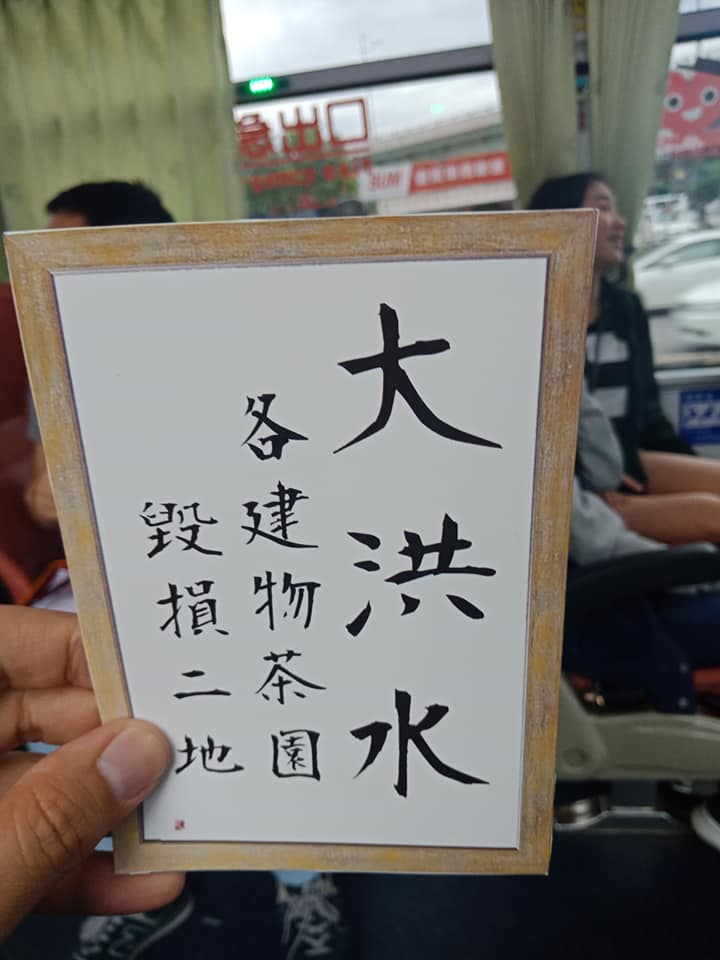 大洪水
各建物茶園
毀損二地
急出口